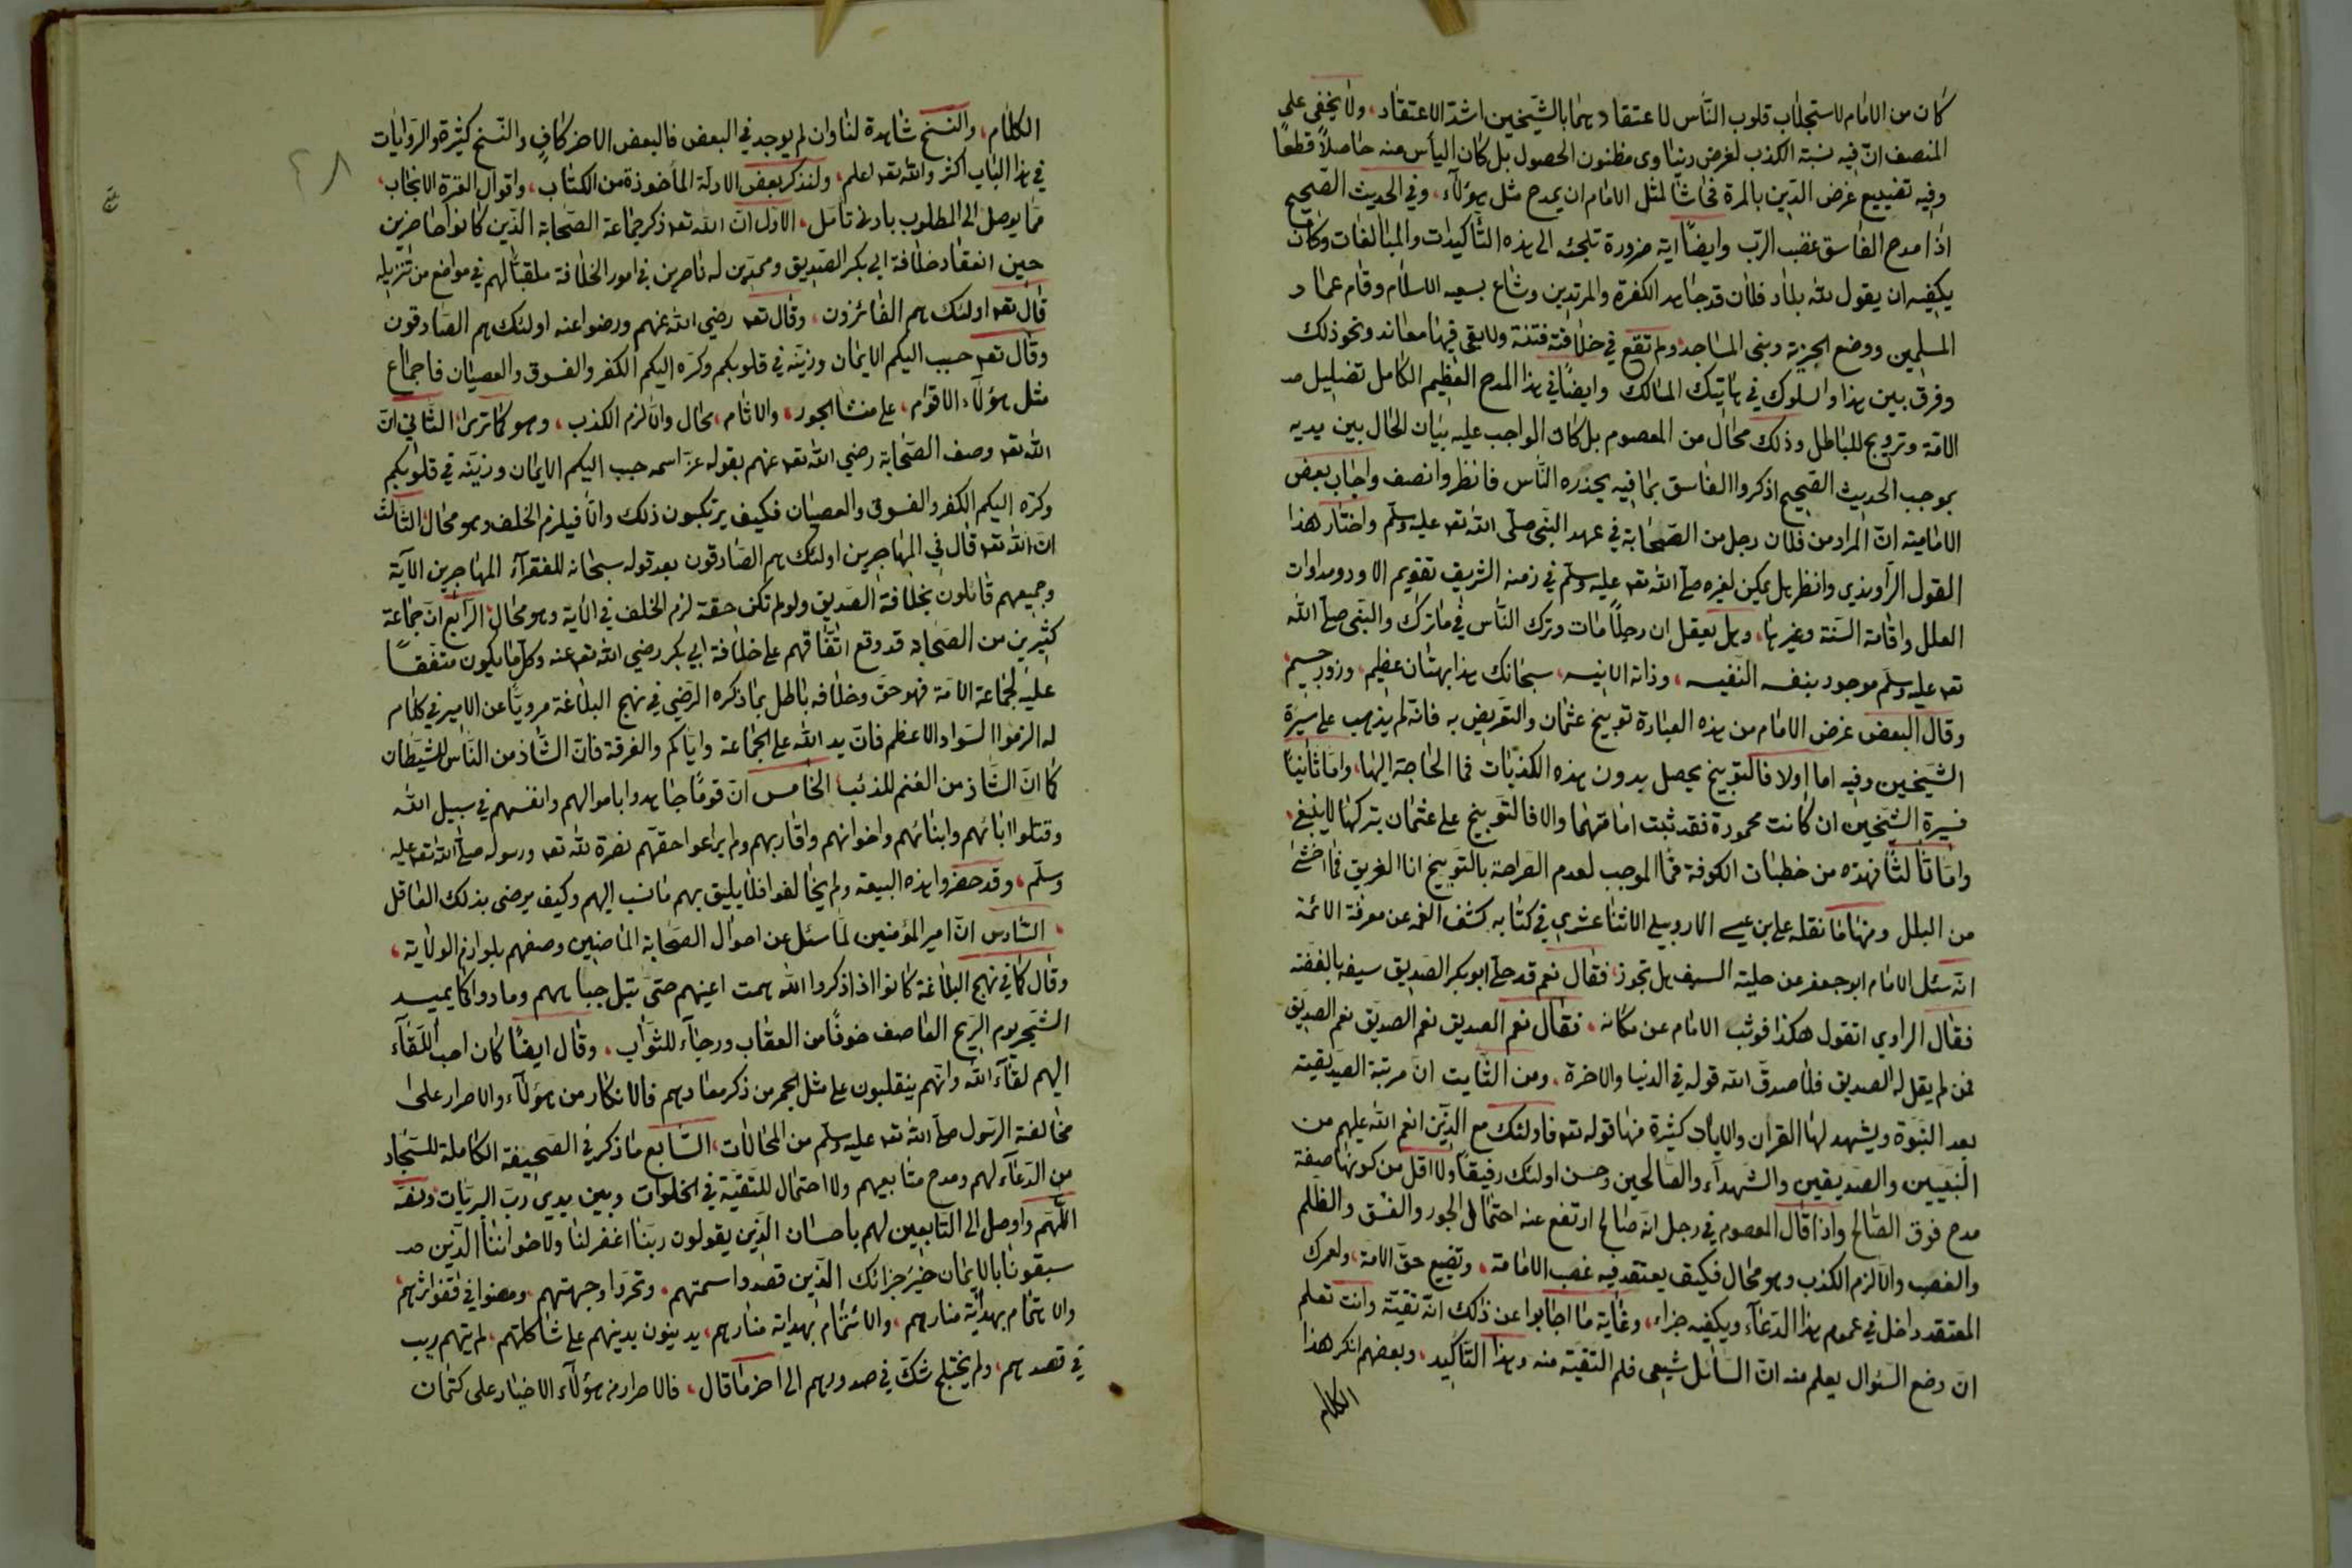 كان من الامام لاستجلاب قلوب النّاس لاعتقادهما بالشيخين اشدّ الاعتقاد، ولا يخفى على
المنصف انّ فيه نسبة الكذب لغرض دنياوى مظنون الحصول بل كان اليأس منه حاصلاً قطعًا
وفيه تضييع غرض الدّين بالمرة فحاشا لمثل الامام ان يمدح مثل هؤلآء، وفي الحديث الصّحيح
اذا مدح الفاسق غضب الرّب وايضًا اية ضرورة تلجئه الى هذه التّأكيدات والمبالغات وكان
يكفيه ان يقول لله بلاد فلان قد جاهد الكفرة والمرتدين وشاع بسعيه الاسلام وقام عماد
المسلمين ووضع الجزية وبنى المساجد ولم تقع في خلافته فتنة ولا بقى فيها معاند ونحو ذلك
وفرق بين هذا والسلوك في هاتيك المسالك وايضًا في هذا المدح العظيم الكامل تضليل
الامّة وترويج للباطل وذلك محال من المعصوم بل كان الواجب عليه بيان الحال بين يديه
بموجب الحديث الصّحيح اذكروا الفاسق بما فيه يحذره النّاس فانظر وانصف واجاب بعض
الاماميّة انّ المراد من فلان رجل من الصّحابة في عهد النّبى صلى الله تعه عليه وسلّم واختار هذا
القول الرّاوندي وانظر هل يمكن لغيره صلى الله تعه عليه وسلّم في زمنه الشريف تقويم الاود ومداوات
العلل واقامة السّنة وغيرها، وهل يعقل ان رجلًا مات وترك النّاس في ما ترك والنّبى صلى الله
تعه عليه وسلّم موجود بنفسه النّفيسه، وذاته الانيسه، سبحانك هذا بهتان عظيم، وزور جسيم،
وقال البعض غرض الامام من هذه العبارة توبيخ عثمان والتّعريض به فانّه لم يذهب على سيرة
الشيخين وفيه اما اولا فالتوبيخ يحصل بدون هذه الكذبات فما الحاجة اليها، وامّا ثانيًا
فسيرة الشّيخين ان كانت محمودة فقد ثبت امامتهما والا فالتّوبيخ على عثمان بتركها لا ينبغى،
وامّا ثالثًا فهذه من خطبات الكوفة فما الموجب لعدم الصّراحة بالتّوبيخ انا الغريق فما اخشى
من البلل ومنها ما نقله على ابن عيسى الاردبيلى الاثنا عشري في كتابه كشف الغمه عن معرفة الائمة
انّه سئل الامام ابو جعفر عن حلية السيف هل تجوز، فقال نعم قد حلّى ابو بكر الصديق سيفه بالفضّه
فقال الراوي اتقول هكذا فوثب الامام عن مكانه، فقال نعم الصديق نعم الصديق نعم الصديق
فمن لم يقل له الصديق فلا صدق الله قوله في الدنيا والاخرة، ومن الثّابت انّ مرتبة الصديقيّة
بعد النّبوّة ويشهد لها القران والايات كثيرة منها قوله تعه فاولئك مع الذّين انعم الله عليهم من
النّبيين والصّديقين والشهدآء والصّالحين وحسن اولئك رفيقًا ولا اقل من كونها صفة
مدح فوق الصّالح واذا قال المعصوم في رجل انّه صالح ارتفع عنه احتمال الجور والفسق والظلم
والغصب والّا لزم الكذب وهو محال فكيف يعتقد فيه غصب الامامة، وتضيع حقّ الامة، ولعمرك
المعتقد داخل في عموم هذا الدّعآء ويكفيه جزاء، وغاية ما اجابوا عن ذلك انّه تقيّة وانت تعلم
انّ وضع السّؤال يعلم منه انّ السّائل شيعى فلم التقيّة منه وهذا التّأكيد، وبعضهم انكر هذا
الكلام
الكلام، والنّسخ شاهدة لنا وان لم يوجد في البعض فالبعض الاخر كافٍ والنّسخ كثيرة والرّوايات
في هذا الباب اكثر والله تعه اعلم، ولنذكر بعض الادلّة المأخوذة من الكتاب، واقوال العترة الانجاب،
ممّا يوصل الى المطلوب بادنى تامّل، الاوّل انّ الله تعه ذكر جماعة الصّحابة الذّين كانوا حاضرين
حين انعقاد خلافة ابي بكر الصّديق وممدّين له ناصرين في امور الخلافة ملقبًا لهم في مواضع من تنزيله
قال تعه اولئك هم الفائزون، وقال تعه رضي الله عنهم ورضوا عنه اولئك هم الصّادقون
وقال تعه حبب اليكم الايمان وزيّنه في قلوبكم وكرّه اليكم الكفر والفسوق والعصيان فاجماع
مثل هؤلآء الاقوام، على منشا الجور، والاثام، محال والّا لزم الكذب، وهو كما ترى، الثّاني انّ
الله تعه وصف الصّحابة رضي الله تعه عنهم بقوله عزّ اسمه حبب اليكم الايمان وزيّنه في قلوبكم
وكرّه اليكم الكفر والفسوق والعصيان فكيف يرتكبون ذلك والّا فيلزم الخلف وهو محال، الثّالث
انّ الله تعه قال في المهاجرين اولئك هم الصّادقون بعد قوله سبحانه للفقرآء المهاجرين الآية
وجميعهم قائلون بخلافة الصّديق ولو لم تكن حقة لزم الخلف في الاية وهو محال، الرّابع انّ جماعة
كثيرين من الصّحابة قد وقع اتّفاقهم على خلافة ابي بكر رضي الله تعه عنه وكلّ ما يكون متفقًا
عليه لجماعة الامّة فهو حقّ وخلافه باطل بما ذكره الرّضي في نهج البلاغة مرويّاً عن الامير في كلام
له الزموا السّواد الاعظم فانّ يد الله على الجماعة وايّاكم والفرقة فانّ الشّاذ من النّاس للشّيطان
كما انّ الشّاذ من الغنم للذئب، الخامس انّ قومًا جاهدوا باموالهم وانفسهم في سبيل الله
وقتلوا ابائهم وابنائهم واخوانهم واقاربهم ولم يراعوا حقّهم نصرة لله تعه ورسوله صلى الله تعه عليه
وسلّم، وقد حضروا هذه البيعة ولم يخالفوا فلا يليق بهم ما نسب اليهم وكيف يرضى بذلك العاقل
، السّادس انّ امير المؤمنين لمّا سئل عن احوال الصّحابة الماضيين وصفهم بلوازم الولاية،
وقال كما في نهج البلاغة كانوا اذا ذكروا الله همت اعينهم حتّى تبتل جباههم ومادوا كما يميد
الشّجر يوم الرّيح العاصف خوفًا من العقاب ورجآء للثّواب، وقال ايضًا كان احبّ اللّقآء
اليهم لقآء الله وانّهم ينقلبون على مثل الجمر من ذكر معادهم فالانكار من هؤلآء والاصرار على
مخالفة الرّسول صلى الله تعه عليه وسلّم من المحالات، السّابع ما ذكر في الصّحيفة الكاملة للسّجاد
من الدّعآء لهم ومدح متابعيهم ولا احتمال للتّقيّة في الخلوات وبين يدي ربّ البريّات ونصّه
اللّهمّ واوصل الى التّابعين لهم باحسان الذّين يقولون ربّنا اغفر لنا ولاخواننا الذّين
سبقونا بالايمان خير جزائك الذّين قصدوا سمتهم، وتحرّوا وجهتهم، ومضوا في قفو اثرهم،
والاهتمام بهداية منارهم، والائتمام بهداية منارهم، يدينون بدينهم على شاكلتهم، لم يتهم ريب
في قصدهم، ولم يختلج شكّ في صدورهم الى اخر ما قال، فالاصرار من هؤلآء الاخيار على كتمان